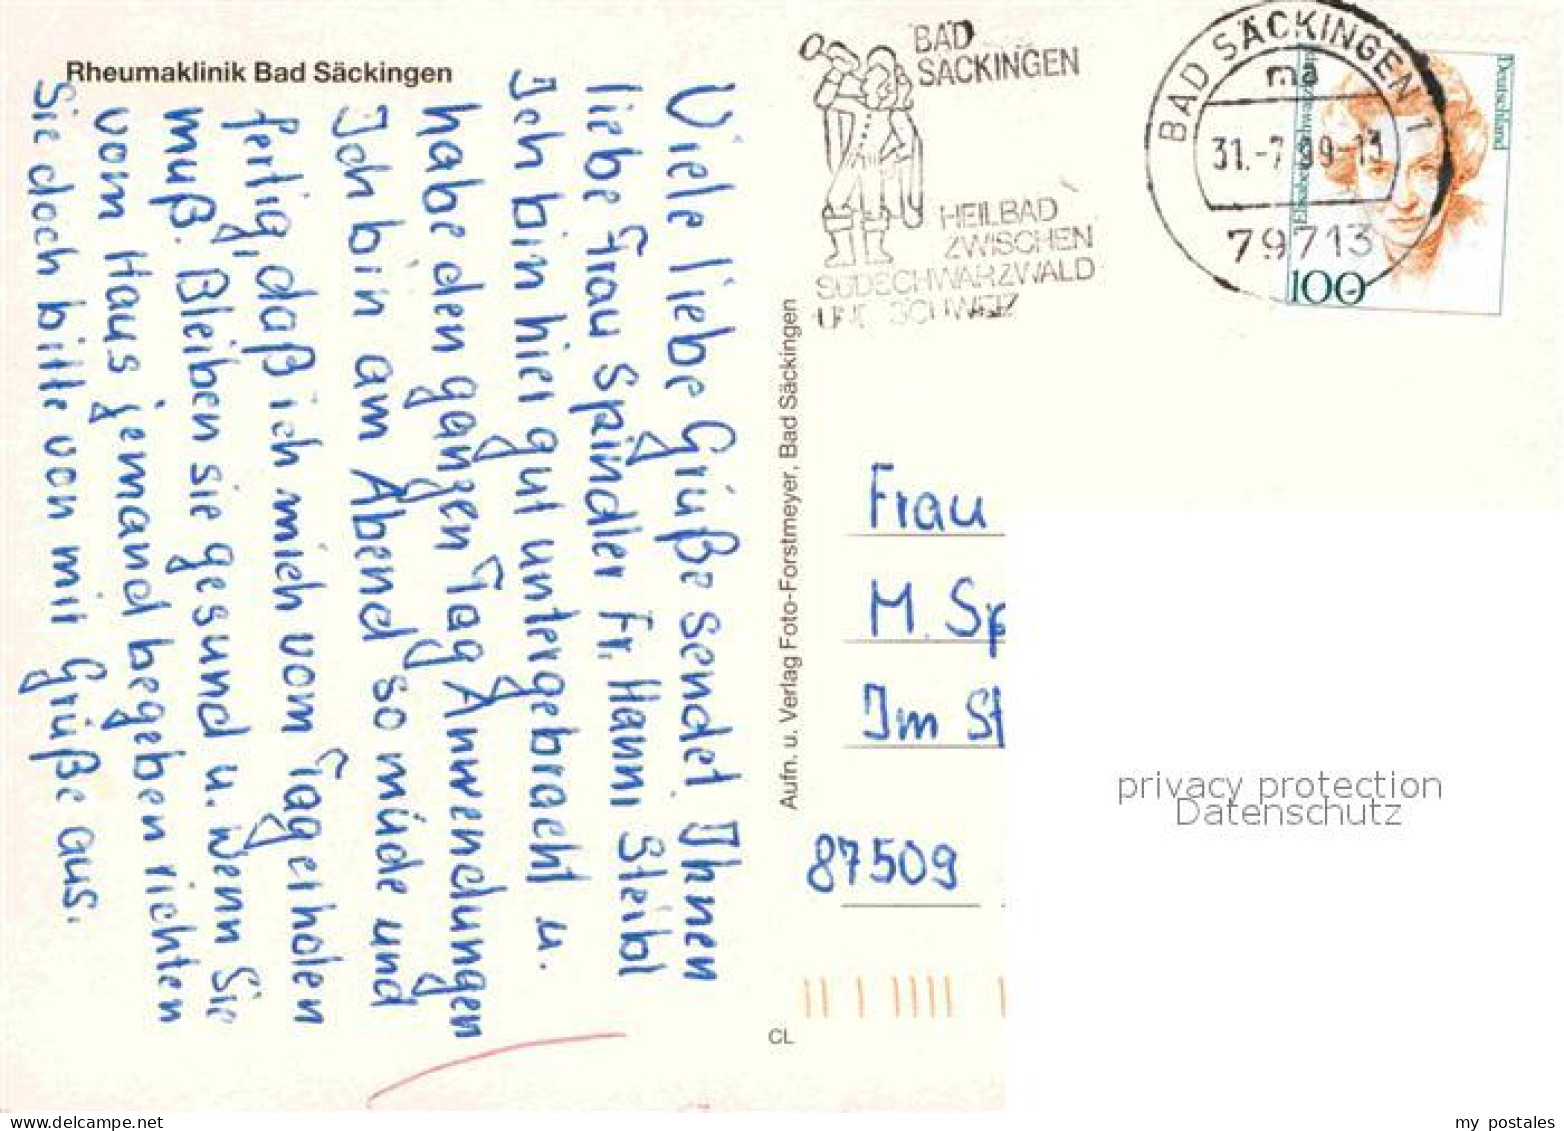 Rheumaklinik Bad Säckingen
Viele liebe Grüße sendet Ihnen
liebe Frau Spindler Fr. Hanni Steibl
Ich bin hier gut untergebracht u.
habe den ganzen Tag Anwendungen
Ich bin am Abend so müde und
fertig, daß ich mich vom Tag erholen
muß. Bleiben sie gesund u. wenn Sie
vom Haus jemand begeben richten
Sie doch bitte von mir Grüße aus.
Aufn. u. Verlag Foto-Forstmeyer, Bad Säckingen
CL
BAD
SÄCKINGEN
HEILBAD
ZWISCHEN
SÜDSCHWARZWALD
UND SCHWEIZ
BAD SÄCKINGEN 1
ma
31.-7.99-13
79713
Deutschland
Elisabeth Schwarzhaupt
100
Frau
M. Sp
Im St
87509
privacy protection
Datenschutz
delcampe.net
my postales